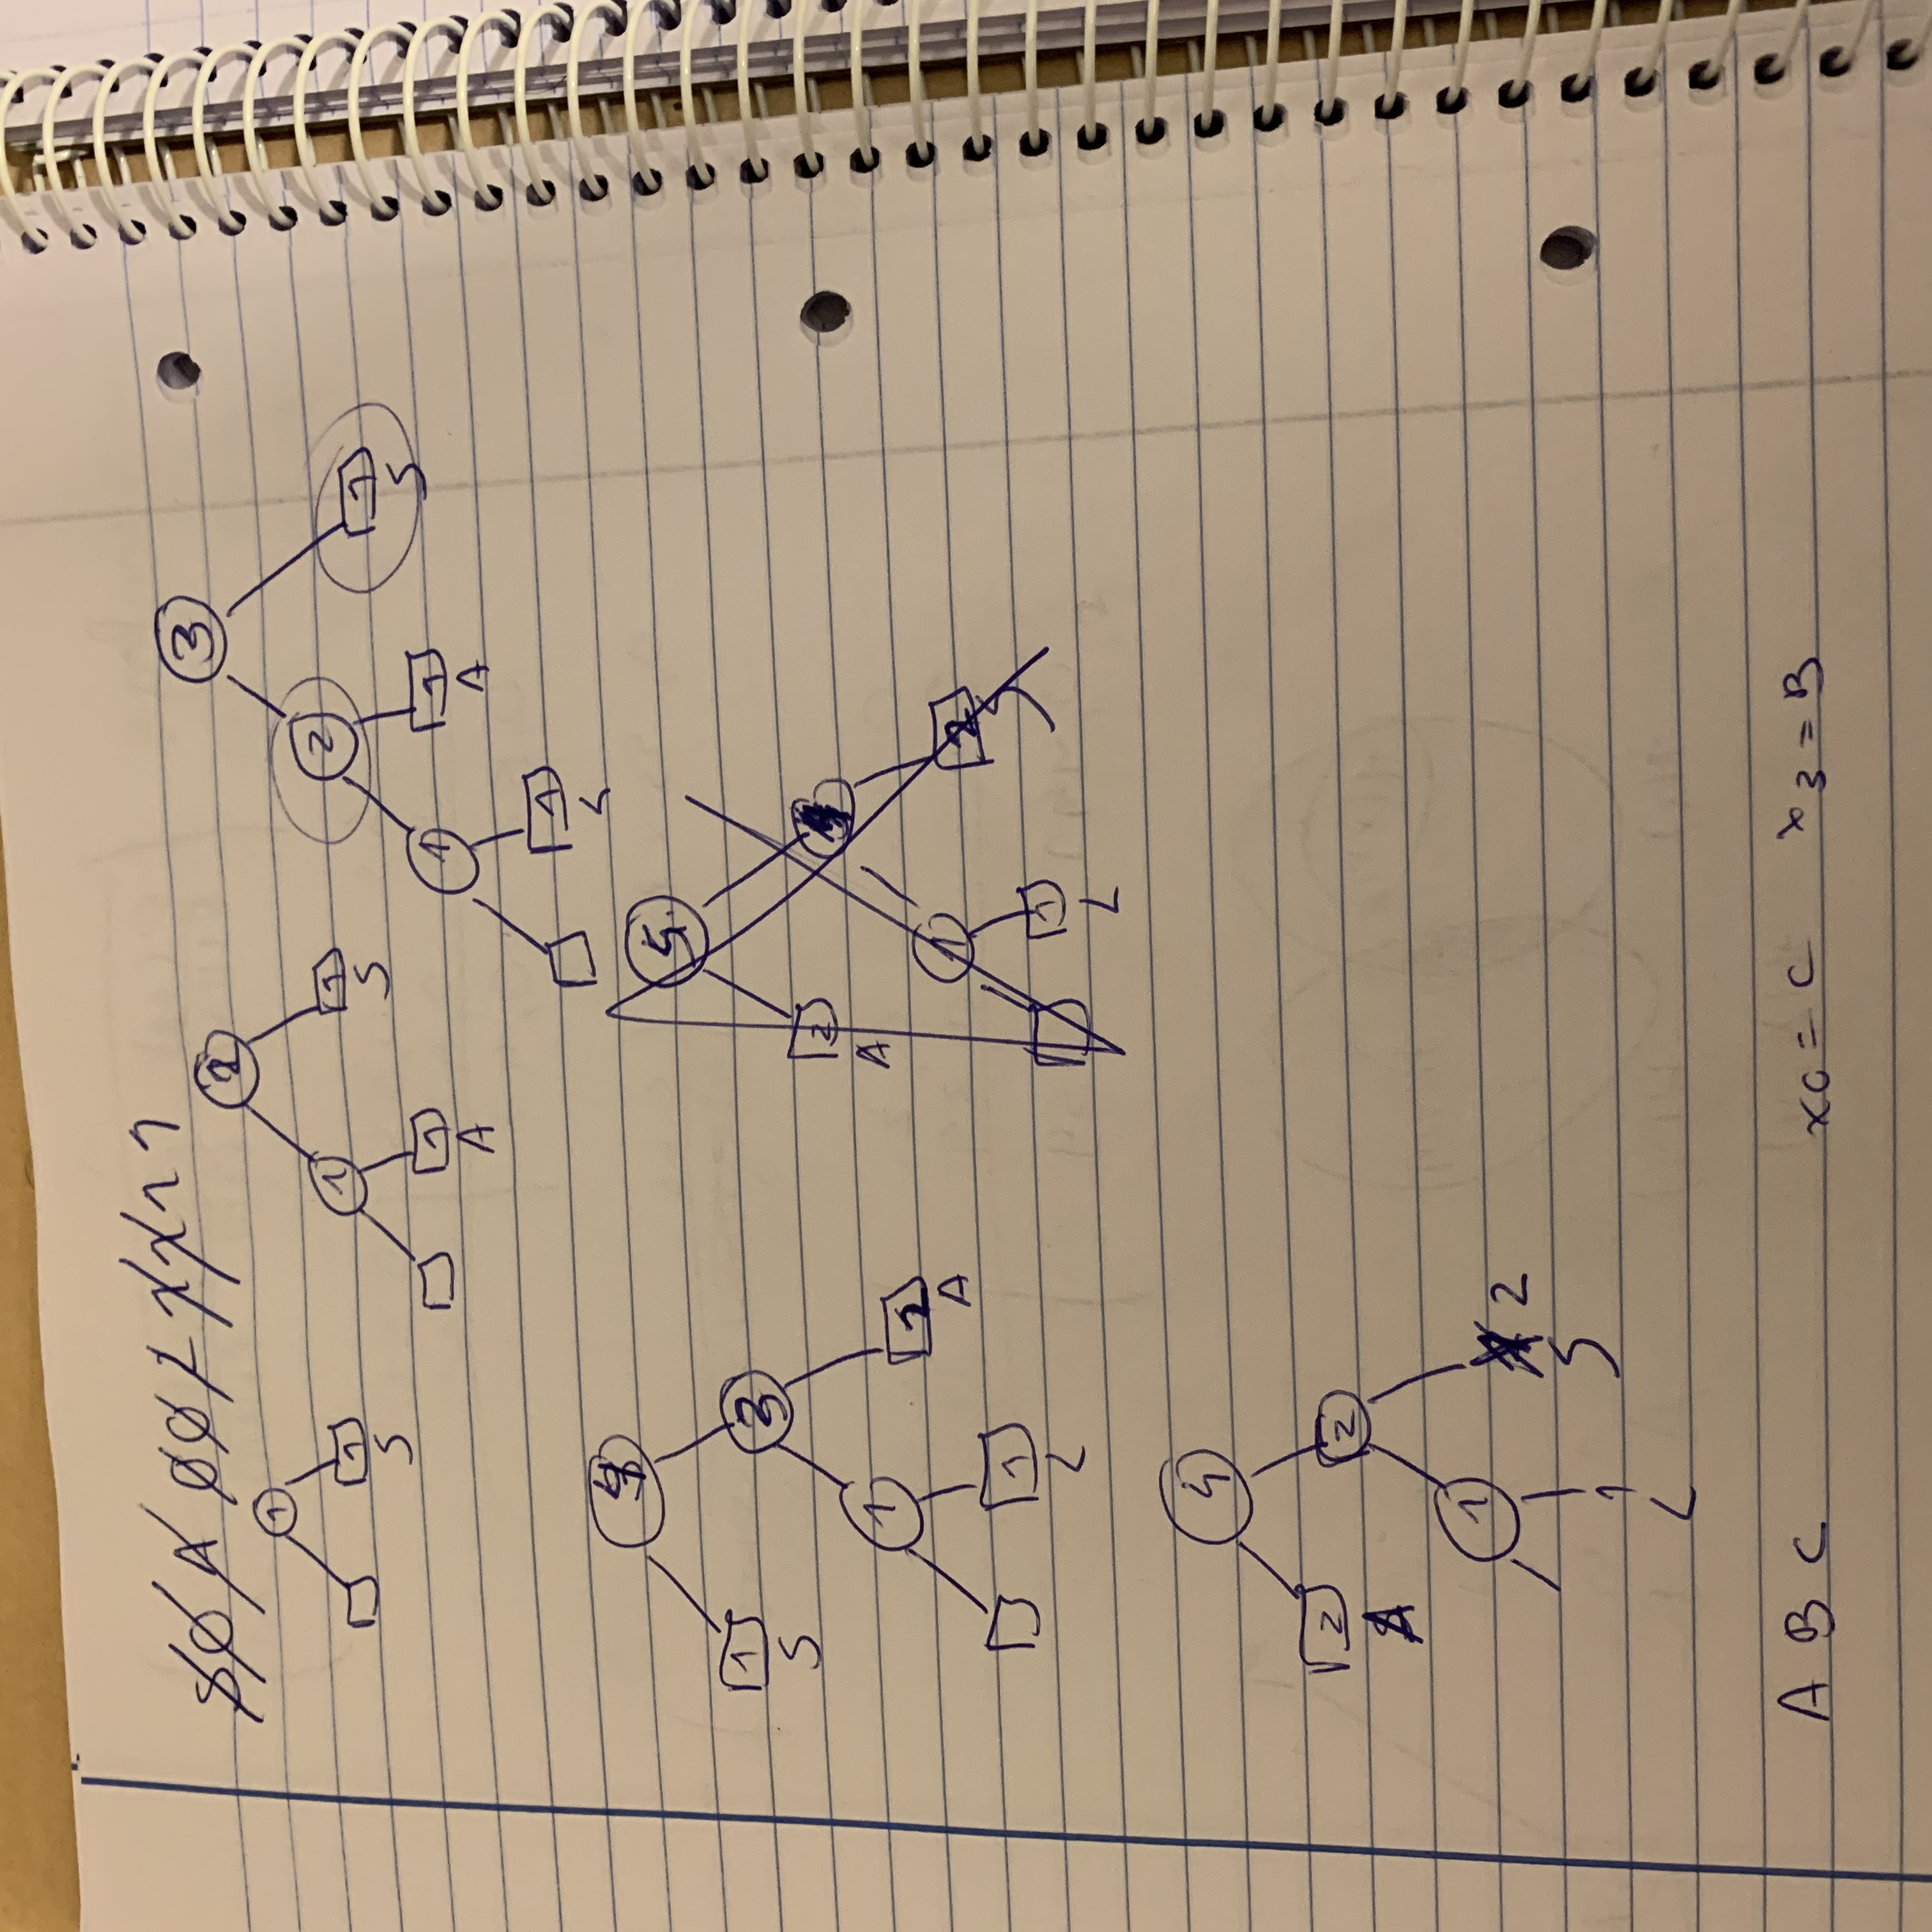 S 0 A 0 0 L 1 1 1 1
1
1
S
2
1
1
S
1
A
3
2
1
S
1
1
A
1
L
4
1
S
3
1
2
A
1
L
5
2
A
1
2
S
1
L
4
2
A
2
1
2
S
1
L
A B C
x0 = C x3 = B